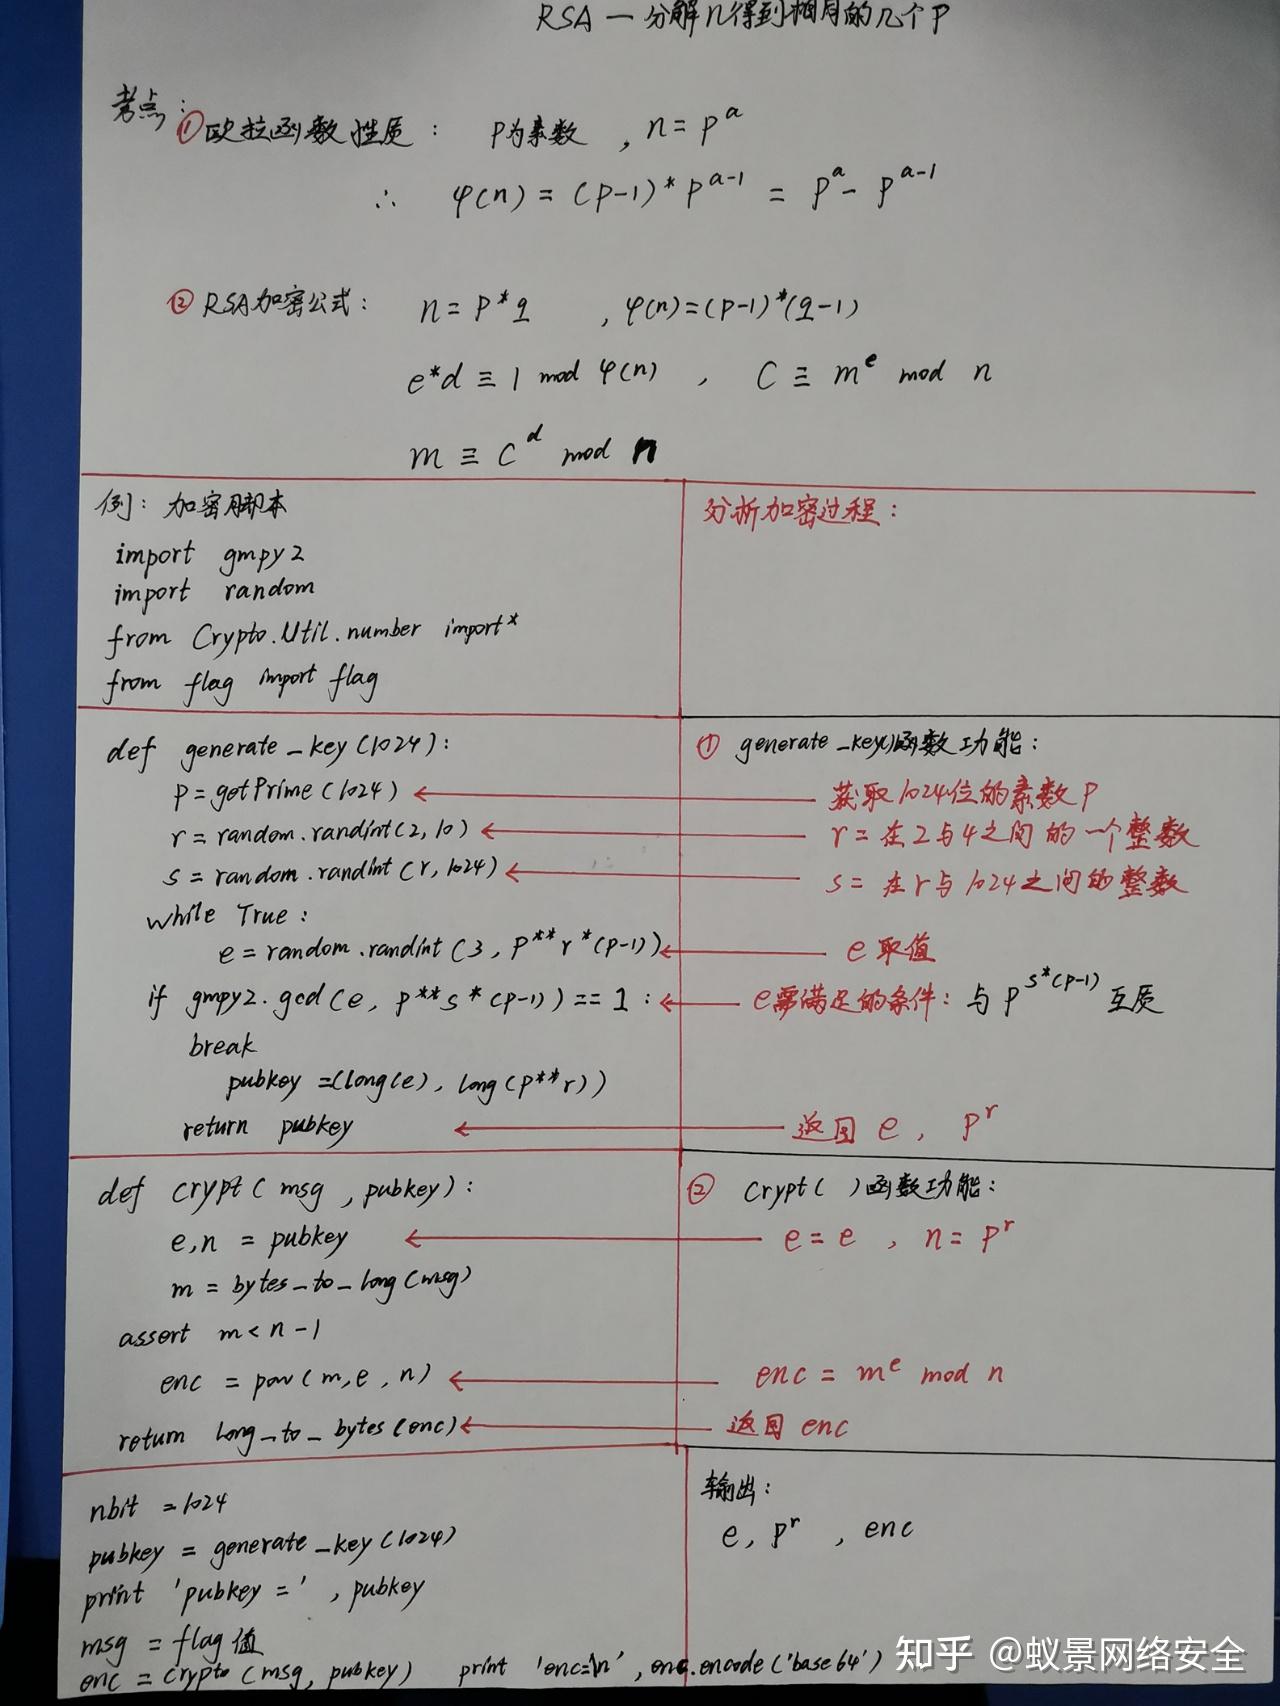 RSA — 分解n得到相同的几个P
考点：
①欧拉函数性质： P为素数 ，n = p^a
∴ φ(n) = (p-1)* p^a-1 = p^a - p^a-1
② RSA加密公式： n = p*q ，φ(n)=(p-1)*(q-1)
e*d ≡ 1 mod φ(n) ， C ≡ m^e mod n
m ≡ C^d mod n
例：加密脚本
import gmpy2
import random
from Crypto.Util.number import*
from flag import flag
分析加密过程：
def generate_key(1024):
p=getPrime(1024)
r=random.randint(2,10)
s=random.randint(r,1024)
while True:
e=random.randint(3, p**r*(p-1))
if gmpy2.gcd(e, p**s*(p-1))==1:
break
pubkey=(long(e), long(p**r))
return pubkey
① generate_key()函数功能：
获取1024位的素数P
r=在2与4之间的一个整数
s=在r与1024之间的整数
e取值
e需满足的条件：与p^s*(p-1)互质
返回 e, p^r
def crypt(msg, pubkey):
e,n = pubkey
m = bytes_to_long(msg)
assert m<n-1
enc = pow(m,e,n)
return long_to_bytes(enc)
② crypt( )函数功能：
e=e , n=p^r
enc = m^e mod n
返回 enc
nbit =1024
pubkey = generate_key(1024)
print 'pubkey =' , pubkey
msg = flag值
enc = crypto(msg, pubkey) print 'enc=\n', enc.encode('base64')
输出：
e, p^r , enc
知乎 @蚁景网络安全